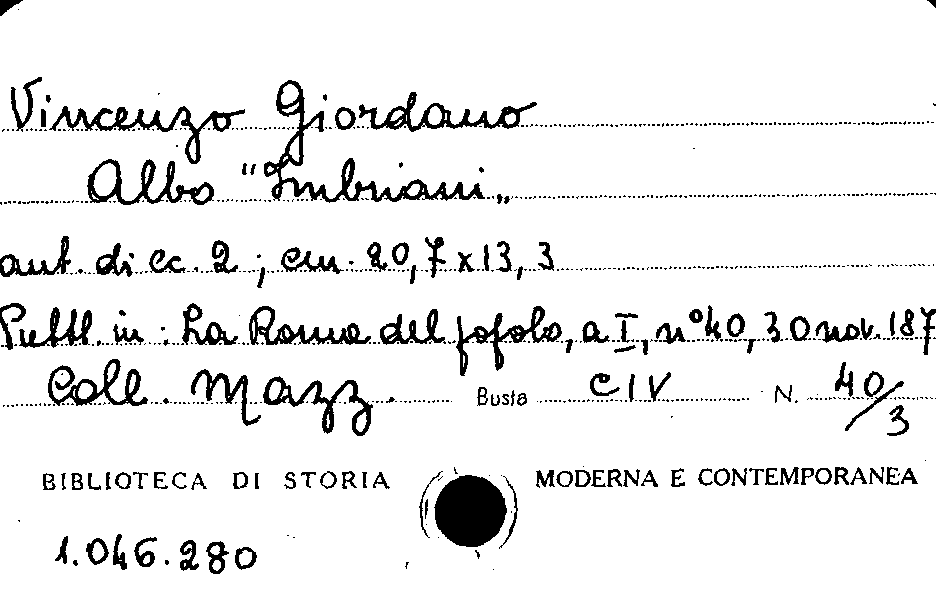 Vincenzo Giordano
Albo "Imbriani„
aut. di cc. 2 ; cm. 20,7 x 13,3
Pubbl. in : La Roma del popolo, a I, n° 40, 30 nov. 187
Coll. Mazz. Busta CIV N. 40/3
BIBLIOTECA DI STORIA MODERNA E CONTEMPORANEA
1.046.280